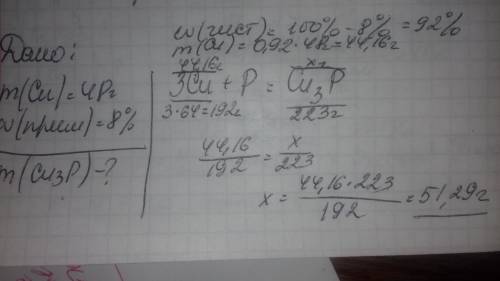 Дано:
m(Cu)=48г
ω(прим)=8%
m(Cu₃P)-?
ω(чист)=100%-8%=92%
m(Cu)=0,92·48=44,16г
44,16г xг
3Cu+P=Cu₃P
3·64=192г 223г
44,16/192=x/223
x=44,16·223/192=51,29г